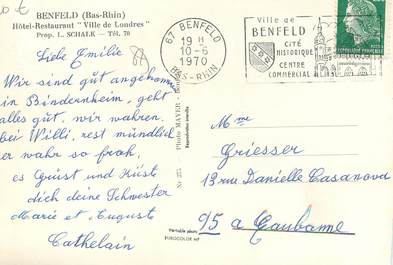 BENFELD (Bas-Rhin)
Hôtel-Restaurant "Ville de Londres"
Prop. L. SCHALK — Tél. 70
Liebe Emilie
Wir sind gut angekommen
in Bindernheim, geht
alles gut, wir wahren
bei Willi, rest mündlich
er wahr so froh,
es Grüst und Küst
dich deine Schwester
Marie et Auguste
Cathelain
67 BENFELD
19 H
10-6
1970
BAS-RHIN
Ville de
BENFELD
CITÉ
HISTORIQUE
CENTRE
COMMERCIAL
Photo MAYER
Reproduction interdite
Véritable photo
EUROCOLOR MF
Mme
Griesser
13 rue Danielle Casanova
95 a Eaubonne